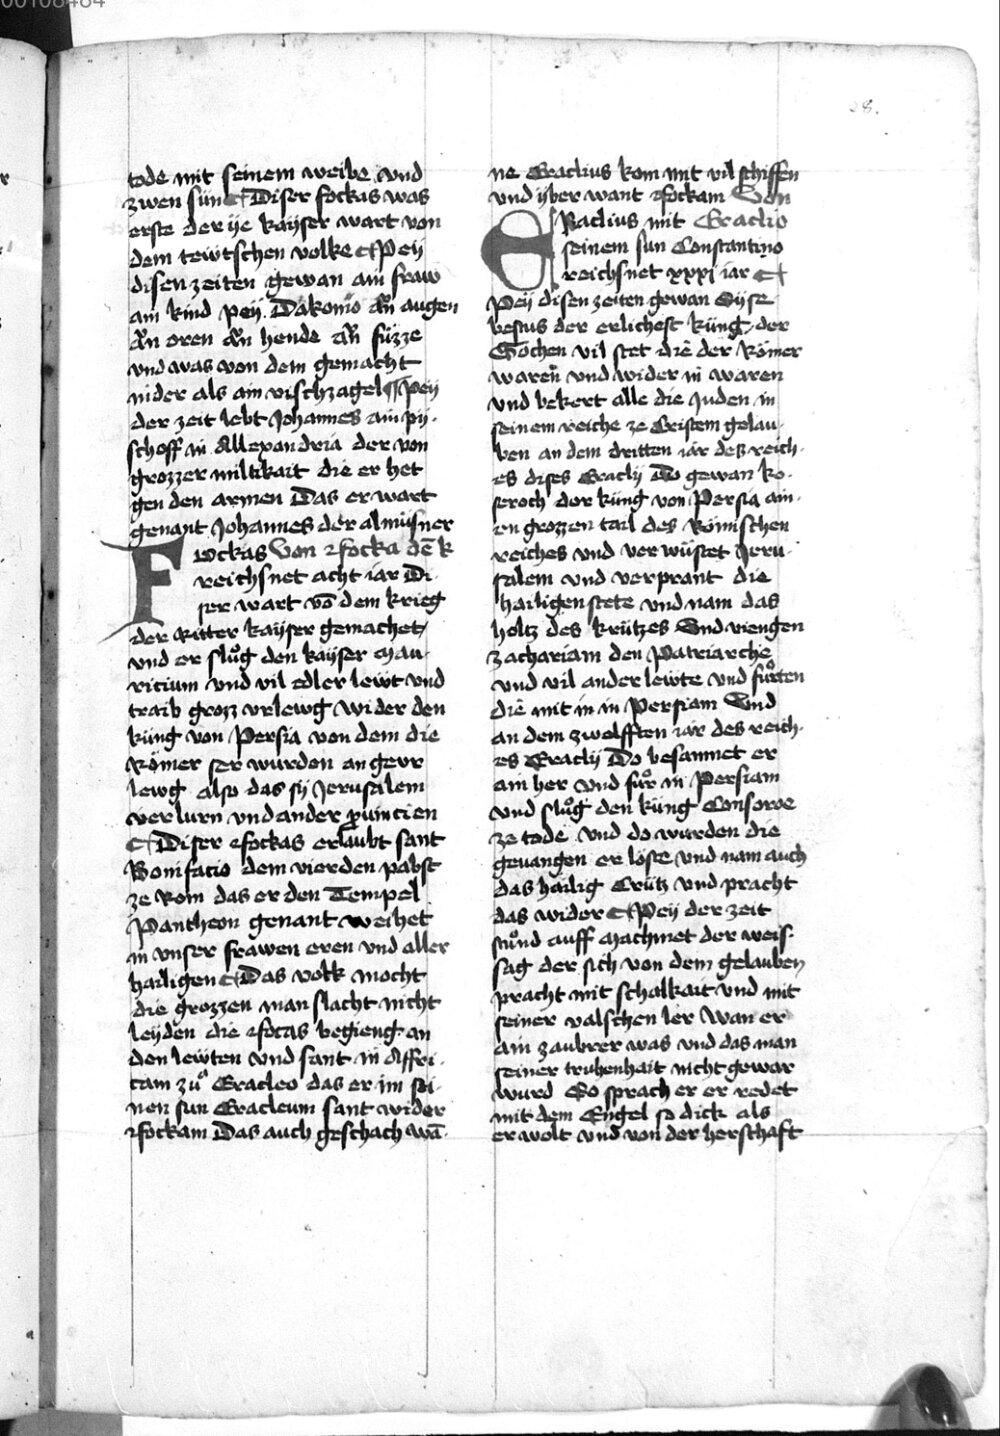 00108484
28.
tode mit seinem weibe vnd
zwen sun Diser fockas was
erste der ye kayser wart von
dem tewtschen volke Pey
disen zeiten gewan ain fraw
ain kind pey Dakonio an augen
an oren an hende an füzze
vnd was von dem gemacht
nider als ain vischzagel Pey
der zeit lebt Johannes ain py-
schoff in Allexandria der von
grozzer miltikait die er het
gen den armen Das er wart
genant Johannes der almüsner
Fockas Von focka dē k
reichsnet acht iar Di-
ser wart vō dem krieg
der Ritter kayser gemachet
vnd er slůg den kayser Mau-
ricium vnd vil edler lewt vnd
traib grozz vrlewg wider den
küng von Persia von dem die
Römer ser wurden an gevr
lewg also das sy Jerusalem
verlurn vnd ander prouincien
Diser fockas erlaubt sant
Bonifacio dem vierden pabst
ze Rom das er den Tempel
Pantheon genant weihet
in vnser frawen eren vnd aller
hailigen Das volk mocht
die grozzen man slacht nicht
leyden die focas begieng an
den lewten vnd sant in Affri-
cam zů Eracleo das er im sei-
nen sun Eracleum sant wider
fockam Das auch geschach wā-
ne Eraclius kom mit vil schiffen
vnd vber want fockam Von
ERaclius mit Eraclio
seinem sun Constantino
reichsnet xxxi iar
Pey disen zeiten gewan Syse-
bestus der erlichest küng der
Gochen vil stet die der Römer
waren vnd wider in waren
vnd bekert alle die Juden in
seinem reiche ze Cristem gelau-
ben an dem dritten iar dez reich-
es dises Eraclij Do gewan ko-
seroch der küng von Persia ain-
en grozzen tail des Römischen
reiches vnd verwüstet Jeru-
salem vnd verprant die
hailigen stete vnd nam das
holtz des krützes Vnd viengen
zachariam den Patriarche
vnd vil ander lewte vnd fůrten
die mit in in Persiam Vnd
an dem zwelfften iar des reich-
es Eraclij Do besamnet er
ain her vnd fůr in Persiam
vnd slůg den küng Consoroe
ze tode vnd do wurden die
gevangen er löste vnd nam auch
das hailig Crütz vnd pracht
das wider Pey der zeit
stůnd auff Machmet der weis-
sag der sich von dem gelauben
pracht mit schalkait vnd mit
seiner valschen ler Wan er
ain zaubrer was vnd das man
seiner truhenhait nicht gewar
wurd So sprach er er redet
mit dem Engel so dick als
er wolt vnd von der herschaft